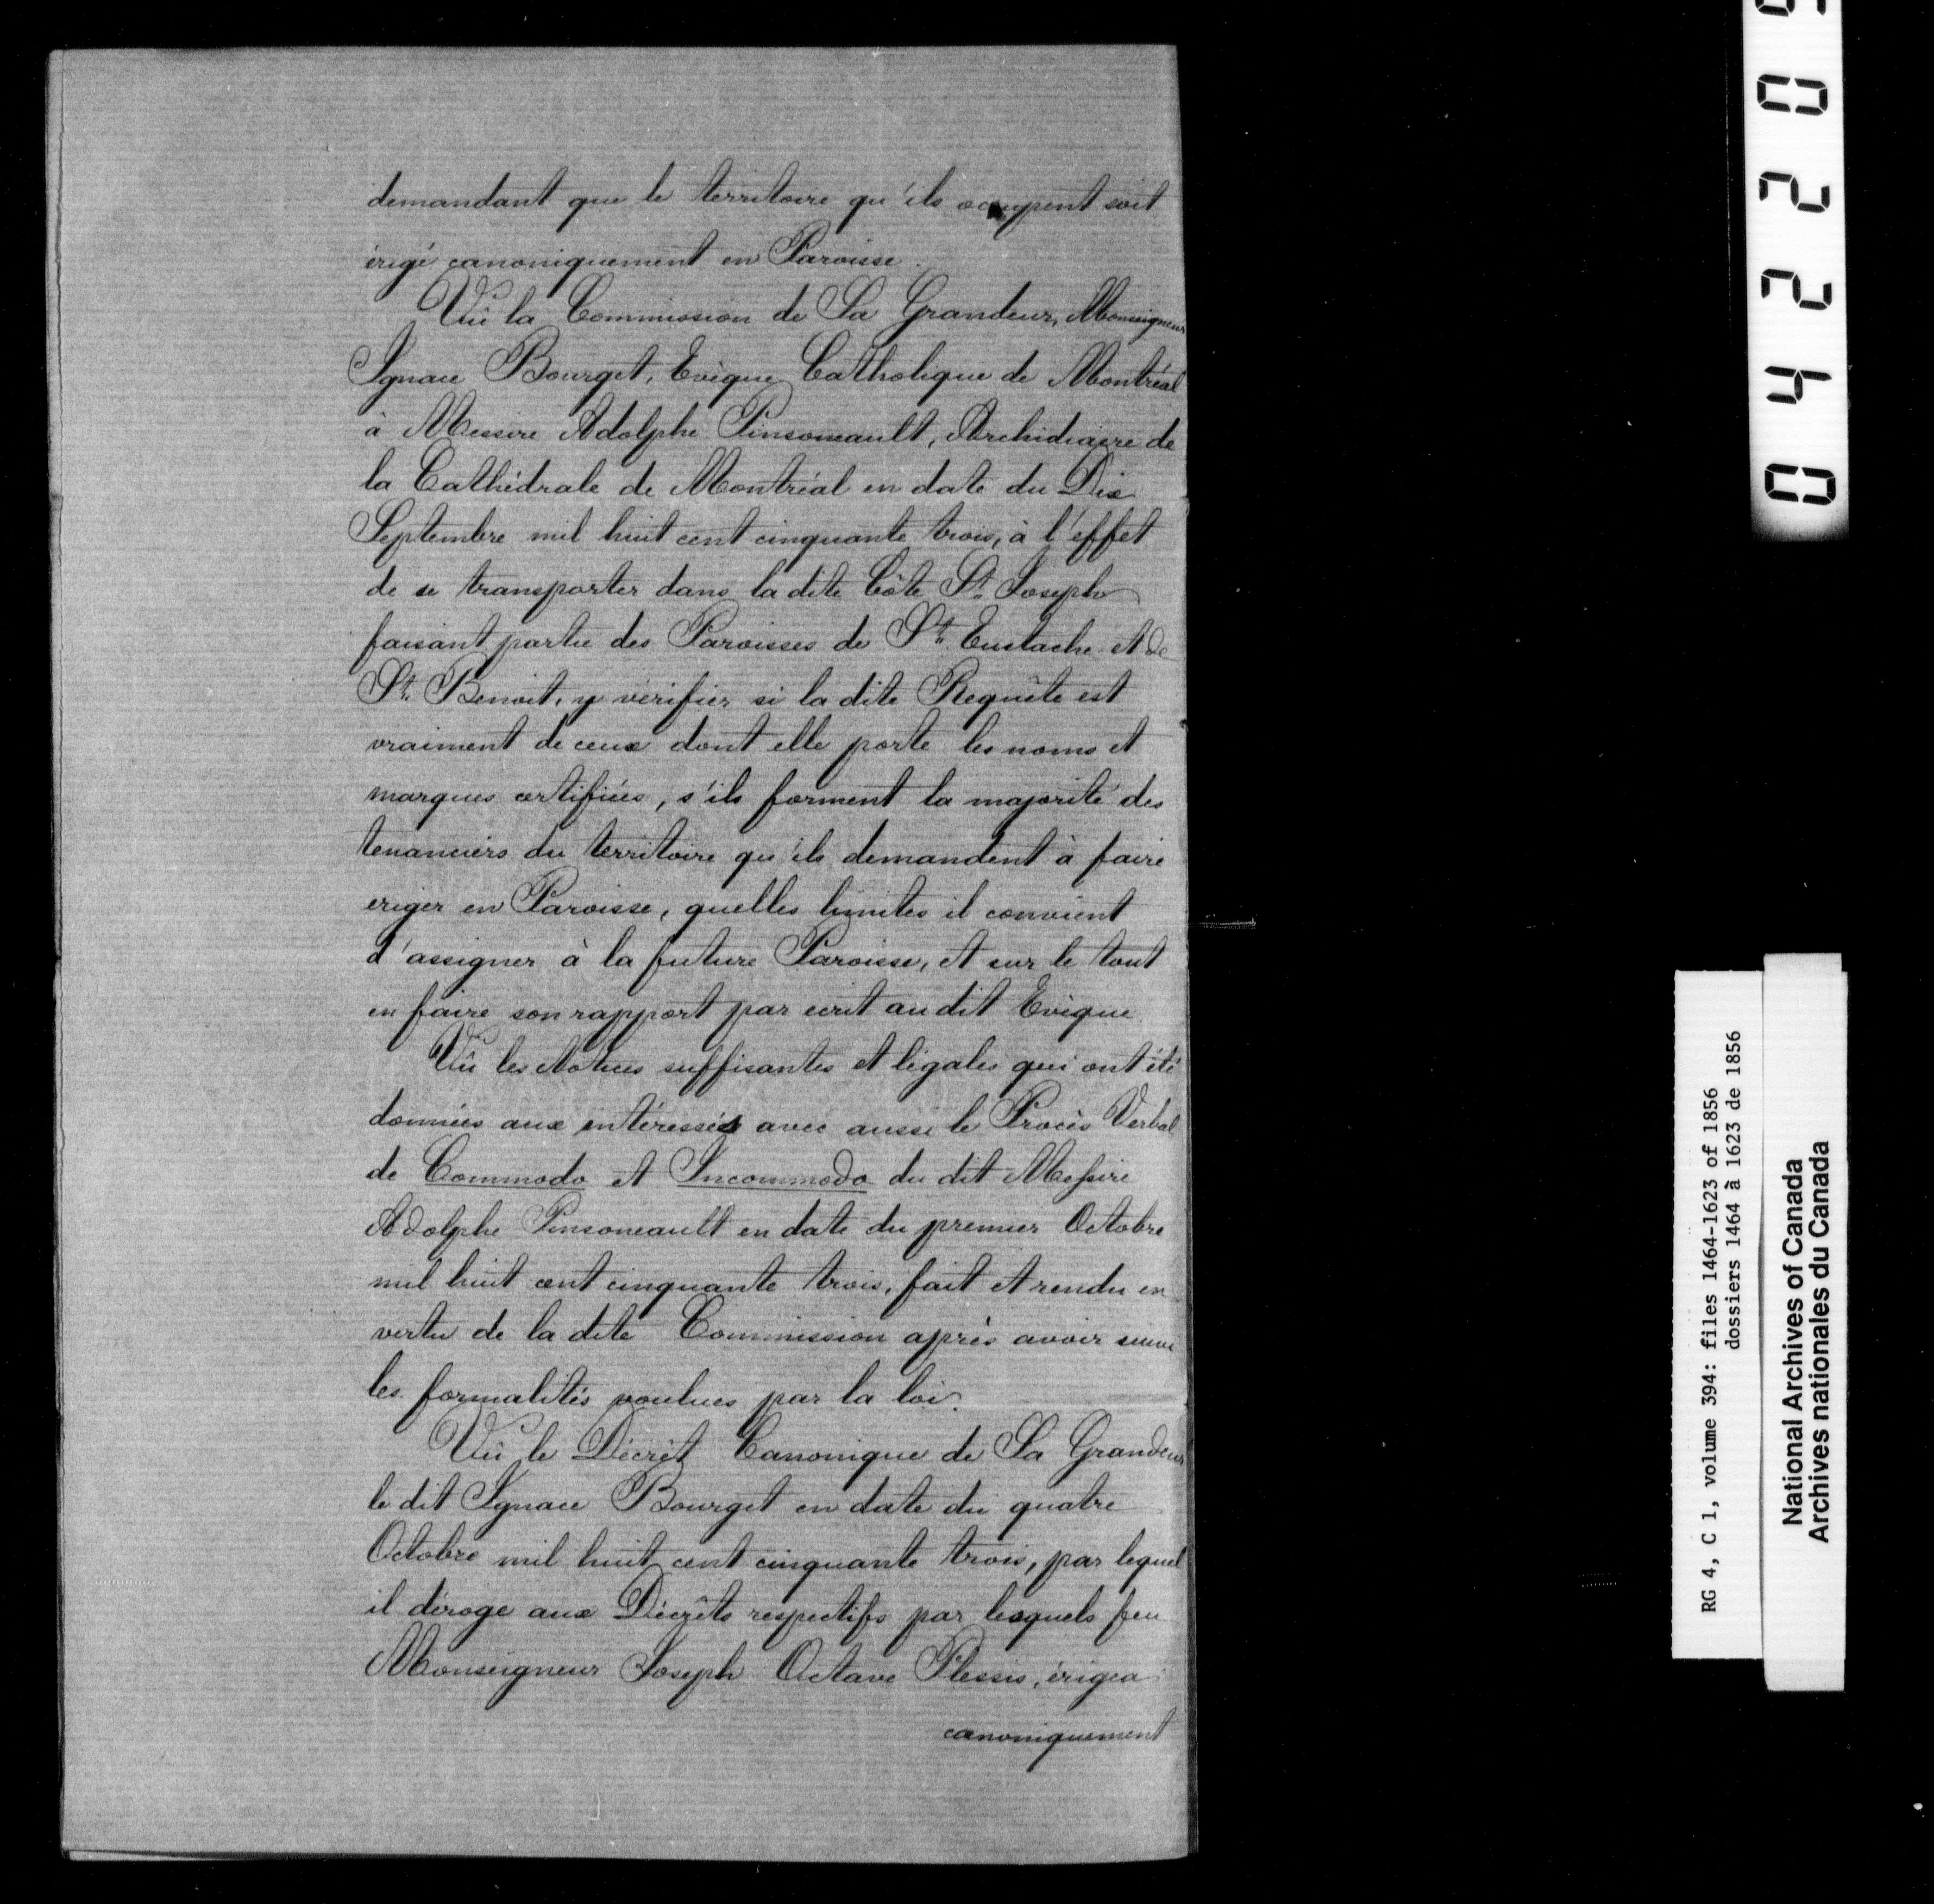 demandant que le territoire qu'ils occupent soit
érigé canoniquement en Paroisse.
Vû la Commission de Sa Grandeur, Monseigneur
Ignace Bourget, Evêque Catholique de Montréal
à Messire Adolphe Pinsoneault, Archidiacre de
la Cathédrale de Montréal en date du Dix
Septembre mil huit cent cinquante trois, à l'effet
de se transporter dans la dite Côte St. Joseph
faisant partie des Paroisses de St. Eustache et de
St. Benoit, y vérifier si la dite Requête est
vraiment de ceux dont elle porte les noms et
marques certifiées, s'ils forment la majorité des
tenanciers du territoire qu'ils demandent à faire
eriger en Paroisse, quelles limites il convient
d'assigner à la future Paroisse, et sur le tout
en faire son rapport par écrit au dit Evêque
Vû les Notices suffisantes et légales qui ont été
données aux intéressés avec aussi le Procès Verbal
de Commodo et Incommodo du dit Messire
Adolphe Pinsoneault en date du premier Octobre
mil huit cent cinquante trois, fait et rendu en
vertu de la dite Commission après avoir suivi
les formalités voulues par la loi.
Vû le Décrêt Canonique de Sa Grandeur
le dit Ignace Bourget en date du quatre
Octobre mil huit cent cinquante trois, par lequel
il déroge aux Décrêts respectifs par lesquels feu
Monseigneur Joseph Octave Plessis, érigea
canoniquement
RG 4, C 1, volume 394: files 1464-1623 of 1856
dossiers 1464 à 1623 de 1856
National Archives of Canada
Archives nationales du Canada
0 4 2 2 0